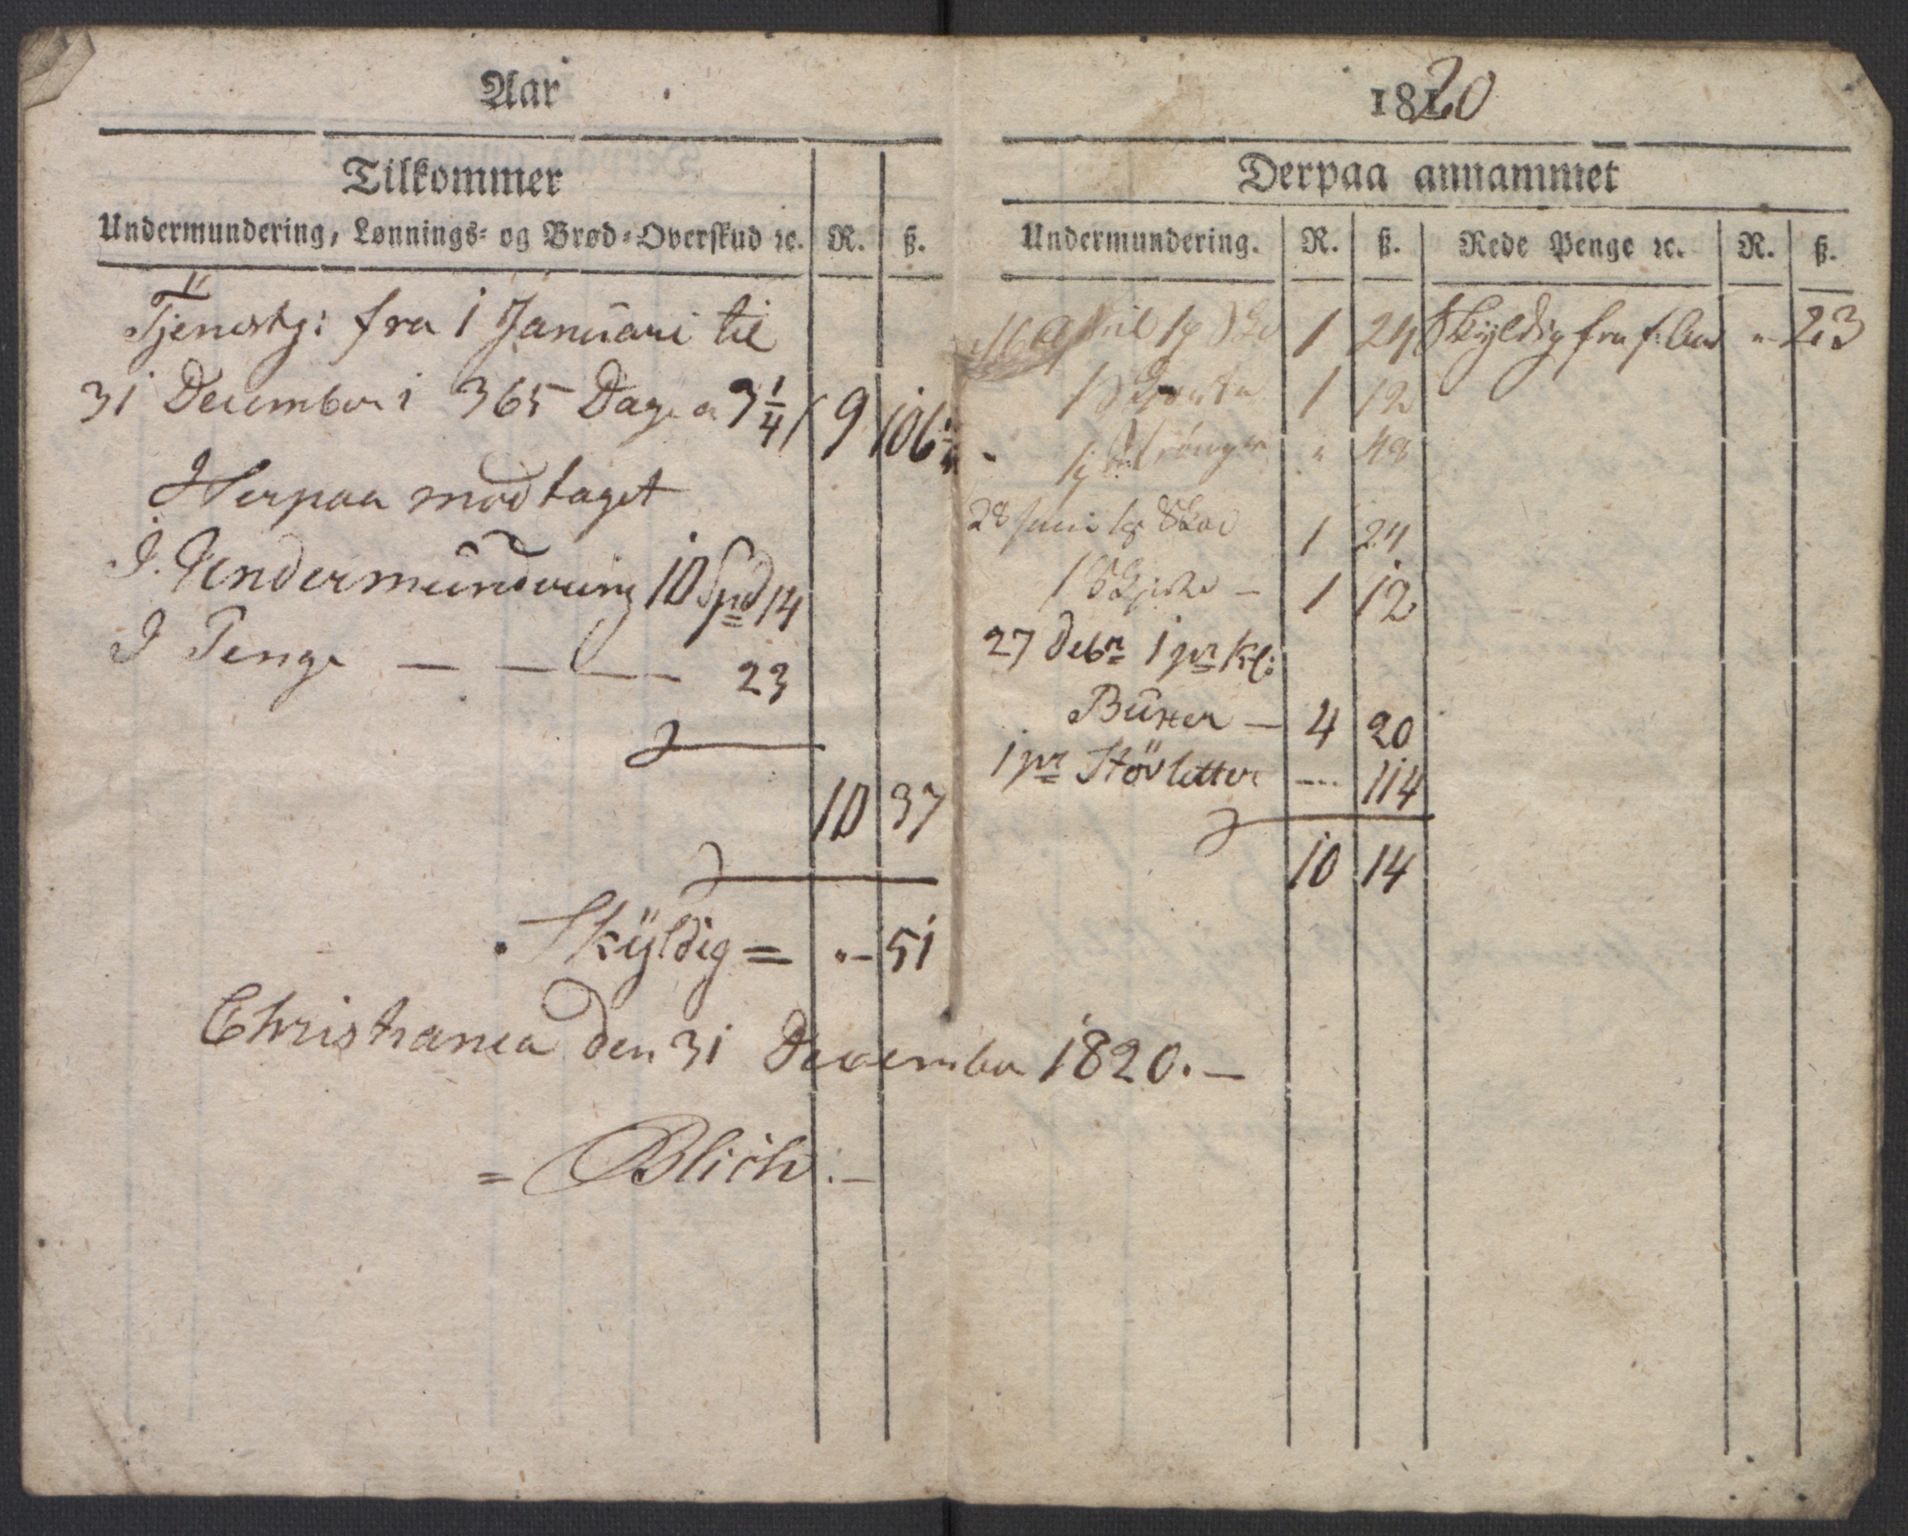 Aar
Tilkommer
Undermundering, Lønnings- og Brød-Overskud ꝛc. R. ß.
Tjenestg: fra 1 Januari til
31 December i 365 Dage a 3¼ ß 9 106¼
Herpaa modtaget
I. Undermundering 10 Spd 14
I Penge — — — — 23
10 37
Skÿldig = " - 51
Christiania den 31 December 1820. —
= Blich: —
1820
Derpaa annammet
Undermundering. R. ß. Rede Penge ꝛc. R. ß.
April 1 pr Sko 1 24 Skyldig fra f: Aar " 23
1 Skjorte 1 12
1 pr Strømper " 48
28 Juni 1 pr Skoe 1 24
1 Skjorte — 1 12
27 Debr 1 pr Kl:
Buxer — 4 20
1 pr Støvletter --- 114
10 14